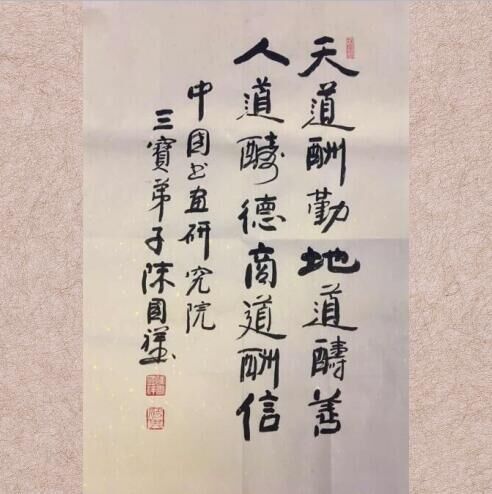 天道酬勤地道醻善
人道酵德商道酬信
中国书画研究院
三寳弟子陈国祥